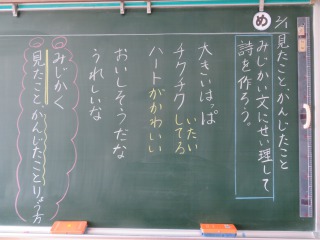 2/1 見たこと、かんじたこと
め
みじかい文にせい理して
詩を作ろう。
大きいはっぱ
いたい
チクチクしてる
ハートがかわいい
おいしそうだな
うれしいな
みじかく
見たこと かんじたこと りょう方